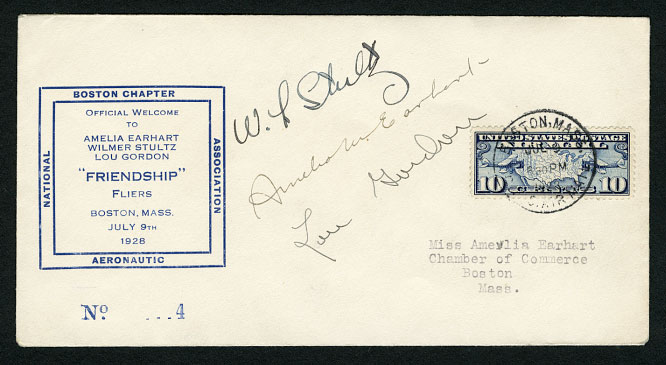 BOSTON CHAPTER
NATIONAL
ASSOCIATION
AERONAUTIC
OFFICIAL WELCOME
TO
AMELIA EARHART
WILMER STULTZ
LOU GORDON
"FRIENDSHIP"
FLIERS
BOSTON, MASS.
JULY 9TH
1928
No. ...4
W. L Stultz
Amelia M. Earhart
Lou Gordon
BOSTON, MASS.
JUL 9
PM
UNITED STATES POSTAGE
10 10
Miss Amevlia Earhart
Chamber of Commerce
Boston
Mass.